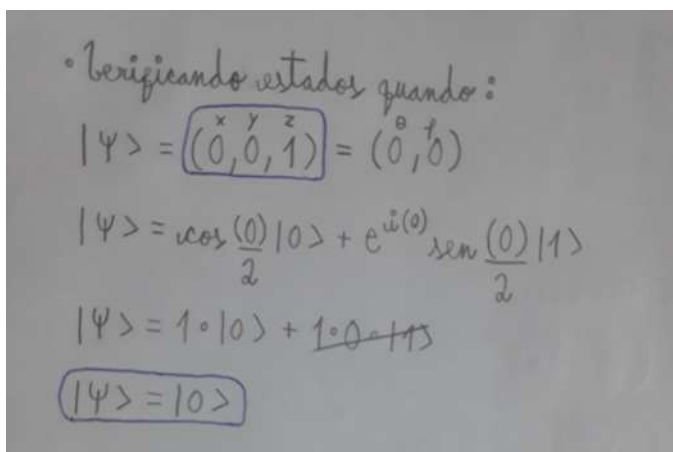 • Verificando estados quando:
x y z θ φ
|Ψ> = (0,0,1) = (0,0)
|Ψ> = cos (0)/2 |0> + e^i(0) sen (0)/2 |1>
|Ψ> = 1•|0> + 1•0•|1>
|Ψ> = |0>